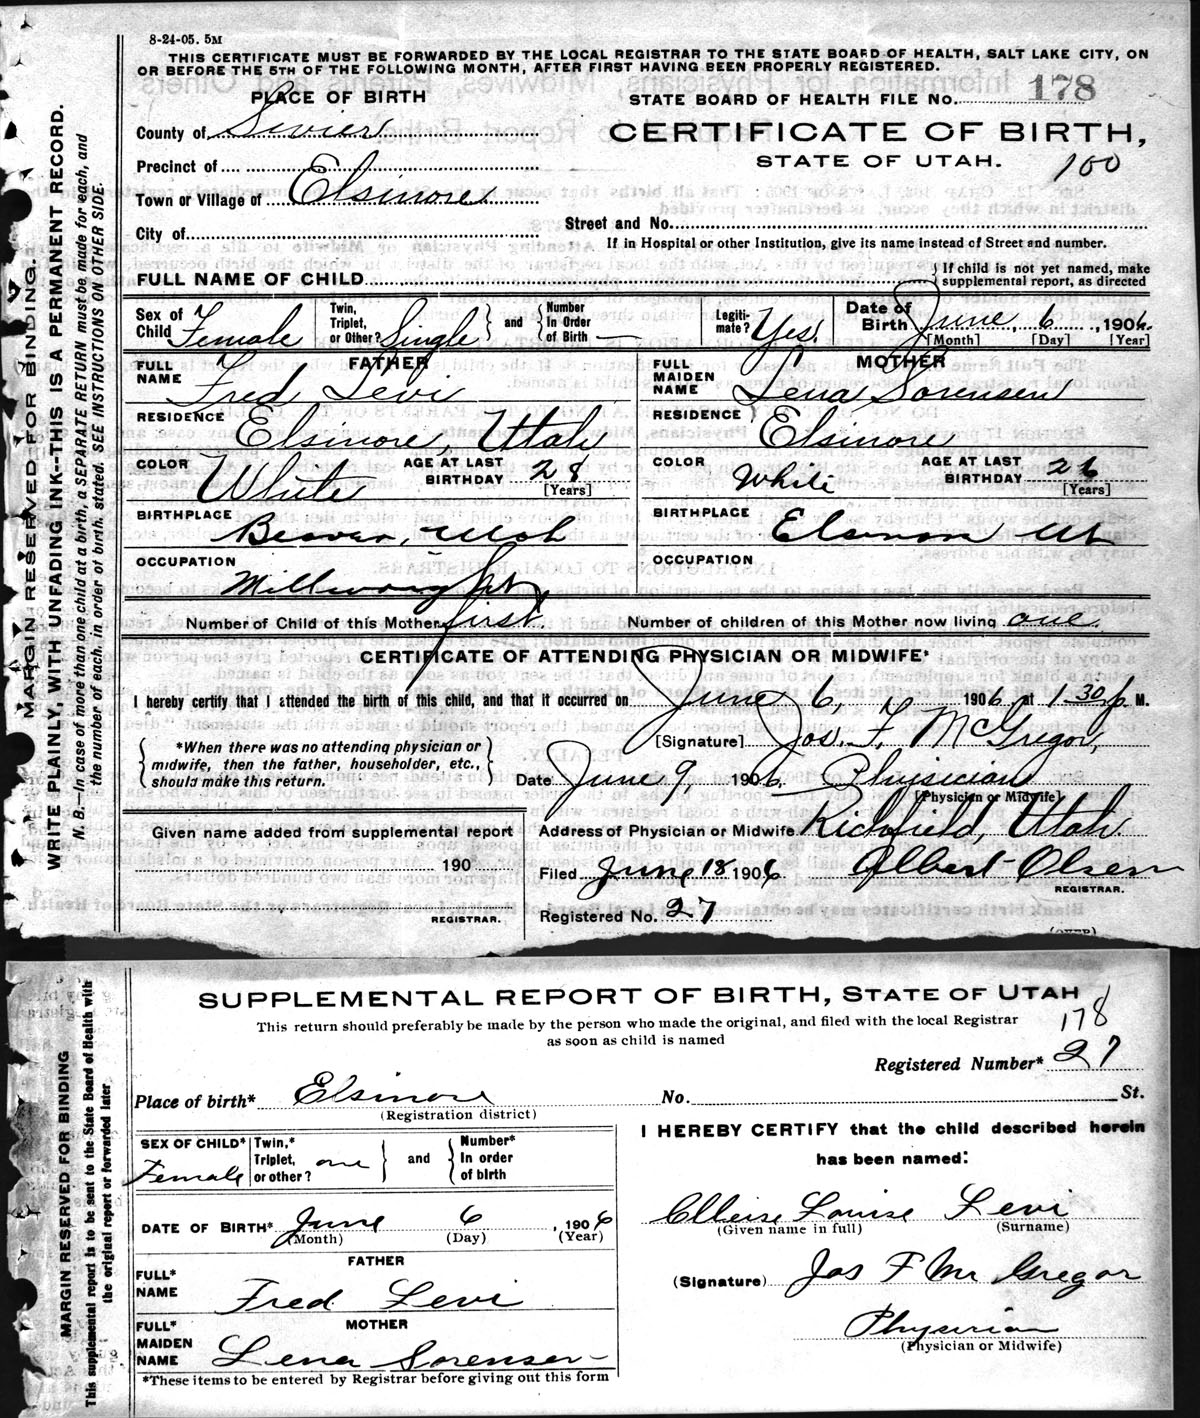 8-24-05. 5M
THIS CERTIFICATE MUST BE FORWARDED BY THE LOCAL REGISTRAR TO THE STATE BOARD OF HEALTH, SALT LAKE CITY, ON
OR BEFORE THE 5TH OF THE FOLLOWING MONTH, AFTER FIRST HAVING BEEN PROPERLY REGISTERED.
PLACE OF BIRTH
STATE BOARD OF HEALTH FILE NO. 178
County of Sevier
CERTIFICATE OF BIRTH,
STATE OF UTAH.
100
Precinct of
Town or Village of Elsinore
City of
Street and No.
If in Hospital or other Institution, give its name instead of Street and number.
FULL NAME OF CHILD
{ If child is not yet named, make
supplemental report, as directed
Sex of Child Female
Twin, Triplet, or Other? Single } and { Number In Order of Birth —
Legitimate? Yes.
Date of Birth June 6, 1906.
[Month] [Day] [Year]
FATHER
FULL NAME Fred Levi
RESIDENCE Elsinore, Utah
COLOR White AGE AT LAST BIRTHDAY 28
[Years]
BIRTHPLACE Beaver, Utah
OCCUPATION Millwright
MOTHER
FULL MAIDEN NAME Lena Sorensen
RESIDENCE Elsinore
COLOR White AGE AT LAST BIRTHDAY 26
[Years]
BIRTHPLACE Elsinore Ut
OCCUPATION
Number of Child of this Mother first. Number of children of this Mother now living one.
CERTIFICATE OF ATTENDING PHYSICIAN OR MIDWIFE*
I hereby certify that I attended the birth of this child, and that it occurred on June 6, 1906 at 1 30 P M.
{ *When there was no attending physician or
midwife, then the father, householder, etc.,
should make this return. }
[Signature] Jos. F. McGregor,
Date June 9, 1906. Physician
[Physician or Midwife]
Given name added from supplemental report
190
REGISTRAR.
Address of Physician or Midwife Richfield, Utah
Filed June 18 1906 Albert Olsen
REGISTRAR.
Registered No. 27
(OVER)
MARGIN RESERVED FOR BINDING.
WRITE PLAINLY, WITH UNFADING INK—THIS IS A PERMANENT RECORD.
N. B.—In case of more than one child at a birth, a SEPARATE RETURN must be made for each, and
the number of each, in order of birth, stated. SEE INSTRUCTIONS ON OTHER SIDE.
SUPPLEMENTAL REPORT OF BIRTH, STATE OF UTAH
This return should preferably be made by the person who made the original, and filed with the local Registrar
as soon as child is named
178
Registered Number* 27
Place of birth* Elsinore No. St.
(Registration district)
SEX OF CHILD* Female
Twin,* Triplet, or other? one } and { Number* In order of birth
DATE OF BIRTH* June 6, 1906
(Month) (Day) (Year)
FATHER
FULL* NAME Fred Levi
MOTHER
FULL* MAIDEN NAME Lena Sorensen
*These items to be entered by Registrar before giving out this form
I HEREBY CERTIFY that the child described herein
has been named:
Louise Levi
(Given name in full) (Surname)
(Signature) Jos F McGregor
Physician
(Physician or Midwife)
MARGIN RESERVED FOR BINDING
This supplemental report is to be sent to the State Board of Health with
the original report or forwarded later